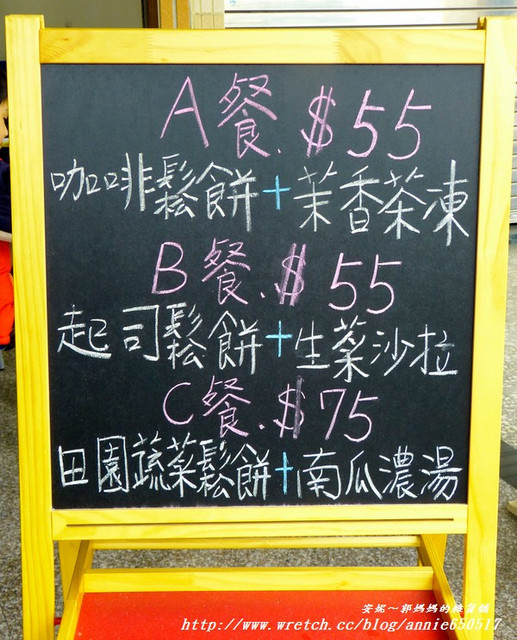 A餐.$55
咖啡鬆餅+茉香茶凍
B餐.$55
起司鬆餅+生菜沙拉
C餐.$75
田園蔬菜鬆餅+南瓜濃湯
安妮～郭媽媽的雜貨舖
http://www.wretch.cc/blog/annie650517